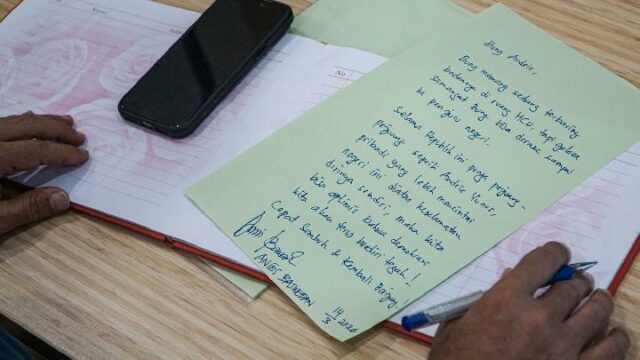 Bung Andrie,
Bung memang sedang terbaring
badannya di ruang HCU, tapi gelora
semangat Bung bisa dirasakan sampai
ke penjuru negeri.
Selama Republik ini punya pejuang-
pejuang seperti Andrie Yunus,
pribadi yang lebih mencintai
negeri ini diatas keselamatan
dirinya sendiri, maka kita
bisa optimis bahwa demokrasi
kita akan terus berdiri tegak!
Cepat Sembuh & Kembali Berjuang.
ANIES BASWEDAN
14/3 2026
No